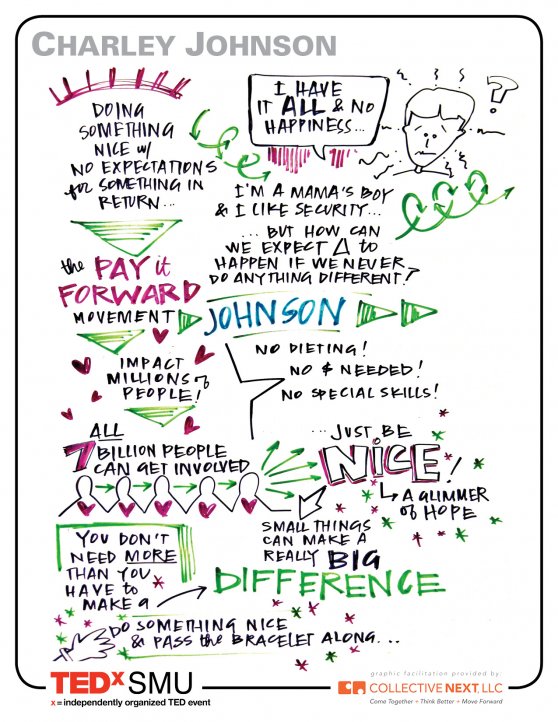 CHARLEY JOHNSON
DOING
SOMETHING
NICE w/
NO EXPECTATIONS
for SOMETHING IN
RETURN...
I HAVE
IT ALL & NO
HAPPINESS...
?
I'M A MAMA'S BOY
& I LIKE SECURITY...
... BUT HOW CAN
WE EXPECT Δ to
HAPPEN IF WE NEVER
DO ANYTHING DIFFERENT?
the PAY it
FORWARD
MOVEMENT
JOHNSON
IMPACT
MILLIONS of
PEOPLE!
NO DIETING!
NO $ NEEDED!
NO SPECIAL SKILLS!
ALL
7 BILLION PEOPLE
CAN GET INVOLVED
...JUST BE
NICE!
A GLIMMER
of HOPE
SMALL THINGS
CAN MAKE A
REALLY BIG
DIFFERENCE
YOU DON'T
NEED MORE
THAN YOU
HAVE to
MAKE A
DO SOMETHING NICE
& PASS the BRACELET ALONG...
TEDxSMU
x = independently organized TED event
graphic facilitation provided by:
COLLECTIVE NEXT, LLC
Come Together + Think Better + Move Forward